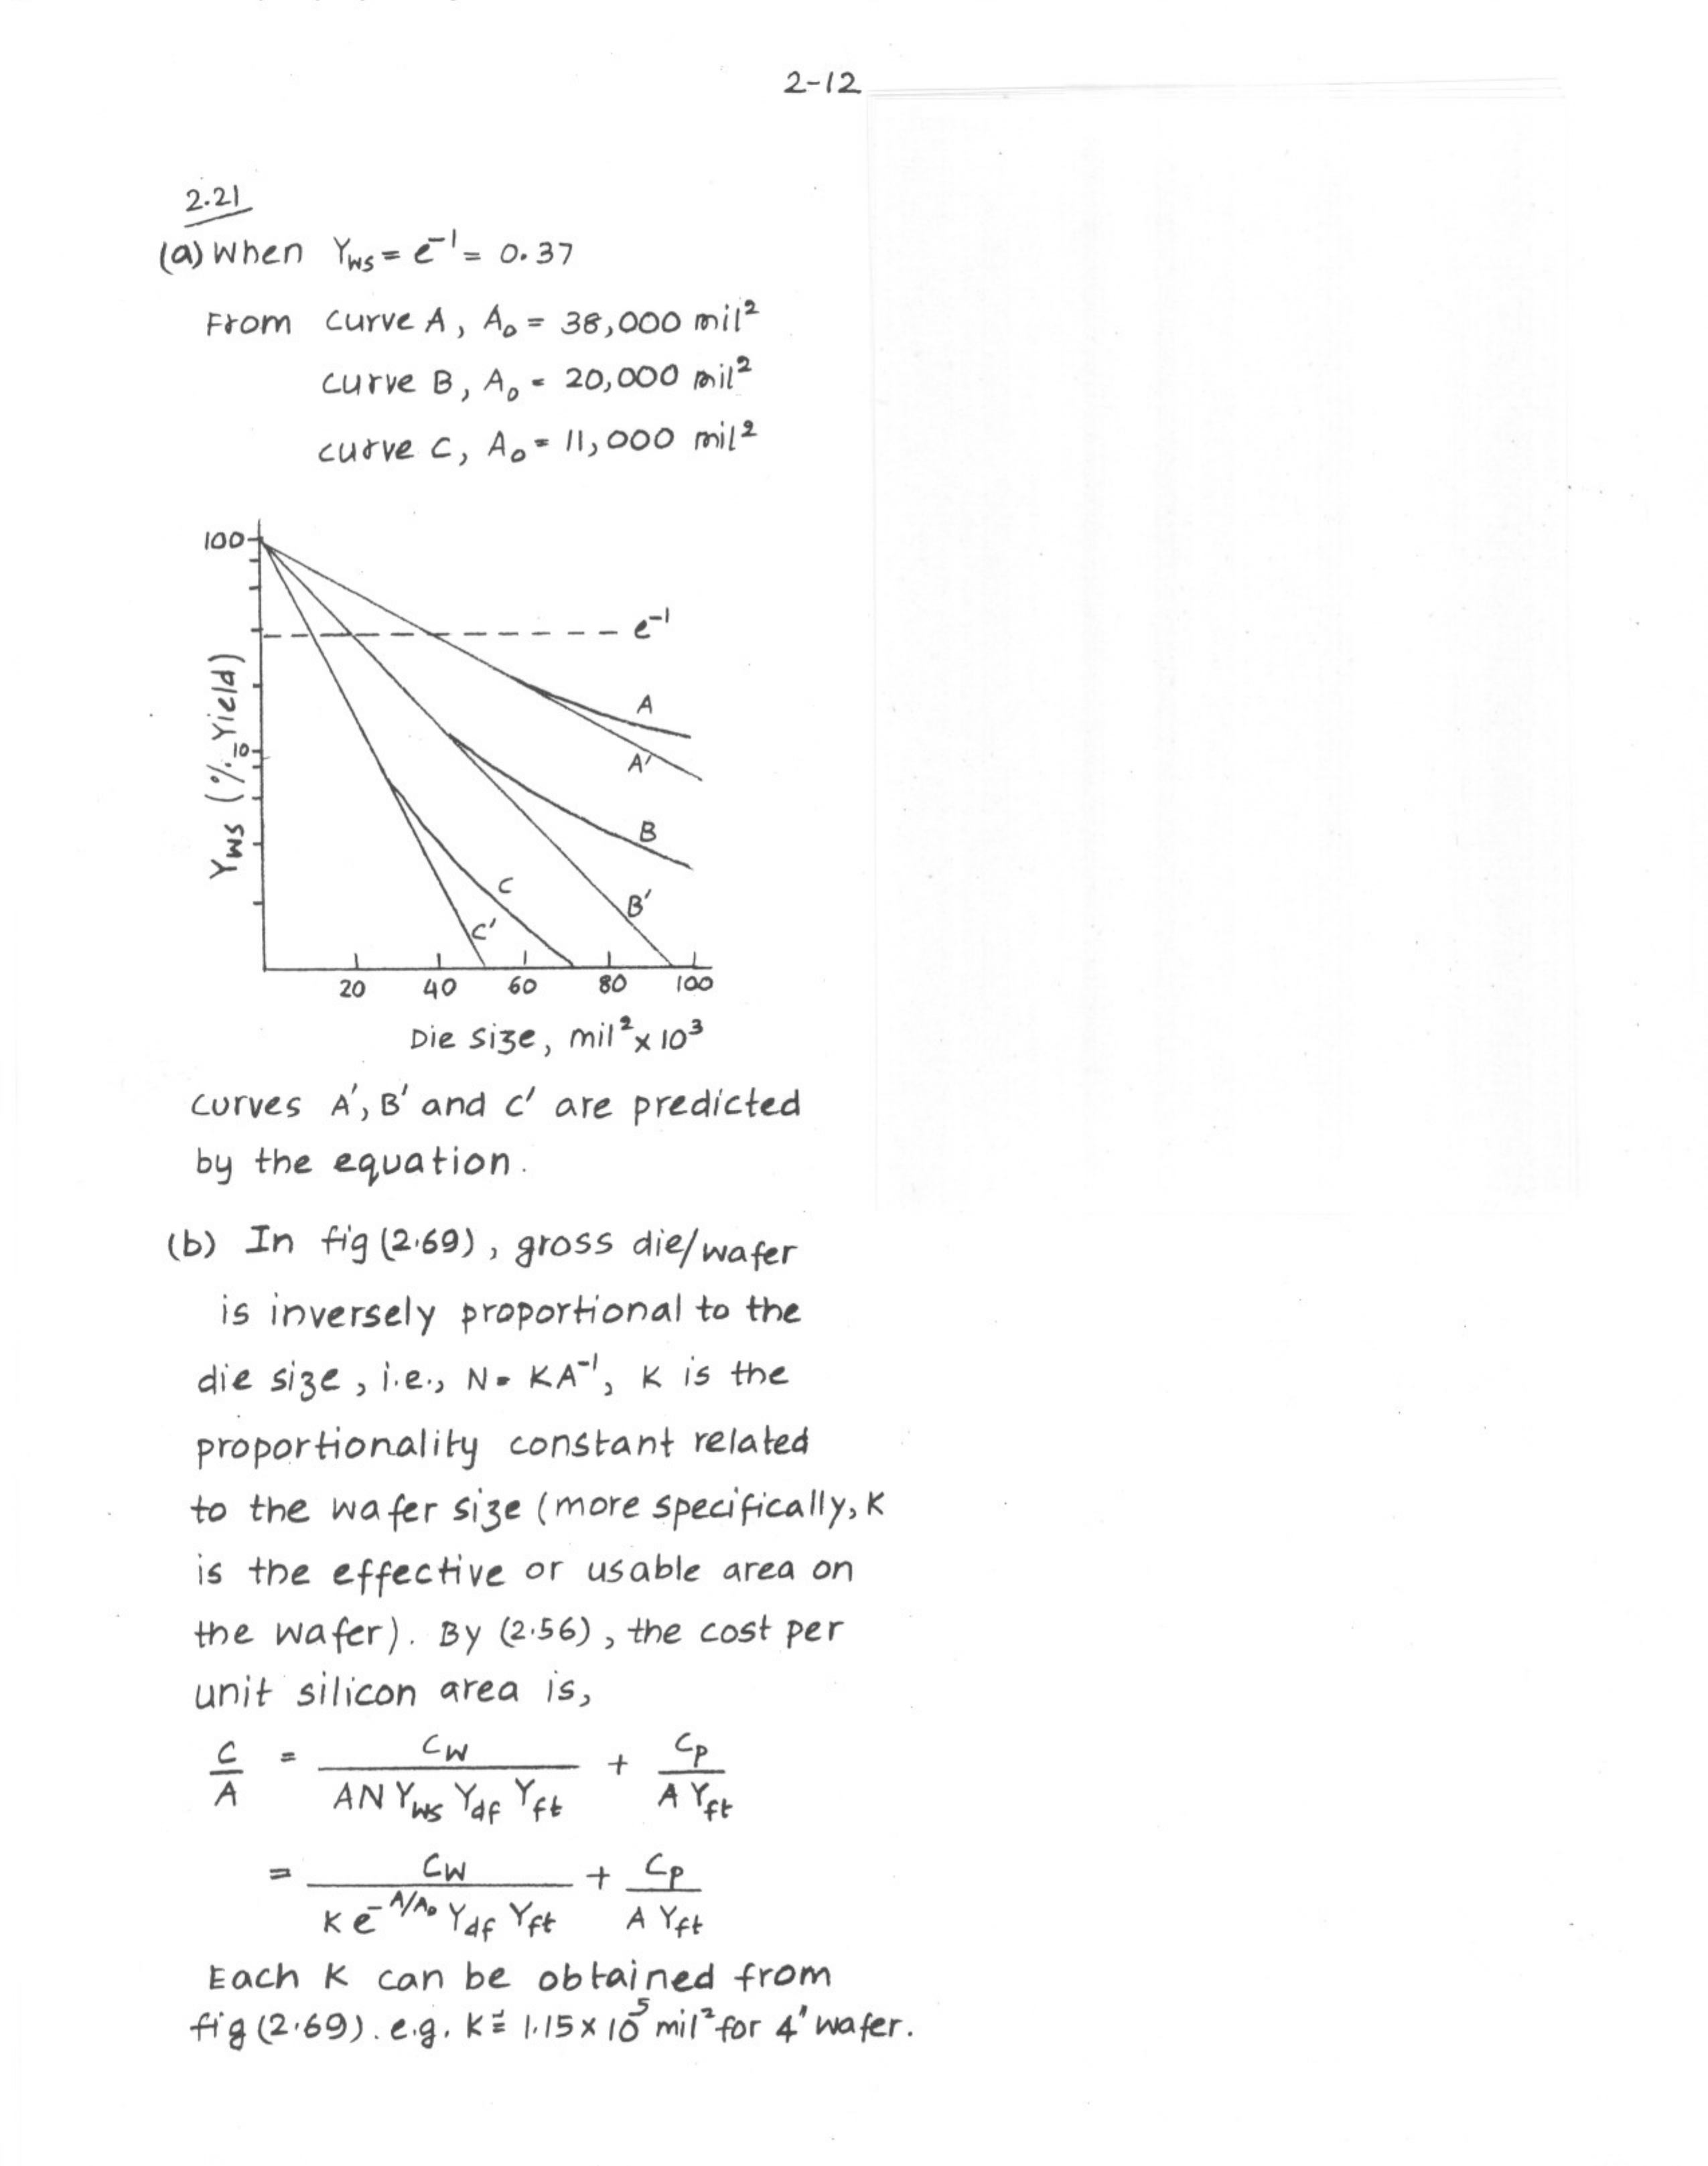 2-12
2.21
(a) When Yws = e⁻¹ = 0.37
From curve A, A₀ = 38,000 mil²
curve B, A₀ = 20,000 mil²
curve C, A₀ = 11,000 mil²
100
e⁻¹
A
A'
10
B
C
B'
C'
Yws (% Yield)
20 40 60 80 100
Die size, mil² x 10³
curves A', B' and C' are predicted
by the equation.
(b) In fig (2.69), gross die/wafer
is inversely proportional to the
die size, i.e., N = KA⁻¹, K is the
proportionality constant related
to the wafer size (more specifically, K
is the effective or usable area on
the wafer). By (2.56), the cost per
unit silicon area is,
C/A = Cw/(AN Yws Ydf Yft) + Cp/(A Yft)
= Cw/(K e^(-A/A₀) Ydf Yft) + Cp/(A Yft)
Each K can be obtained from
fig (2.69). e.g. K ≐ 1.15 x 10⁵ mil² for 4" wafer.